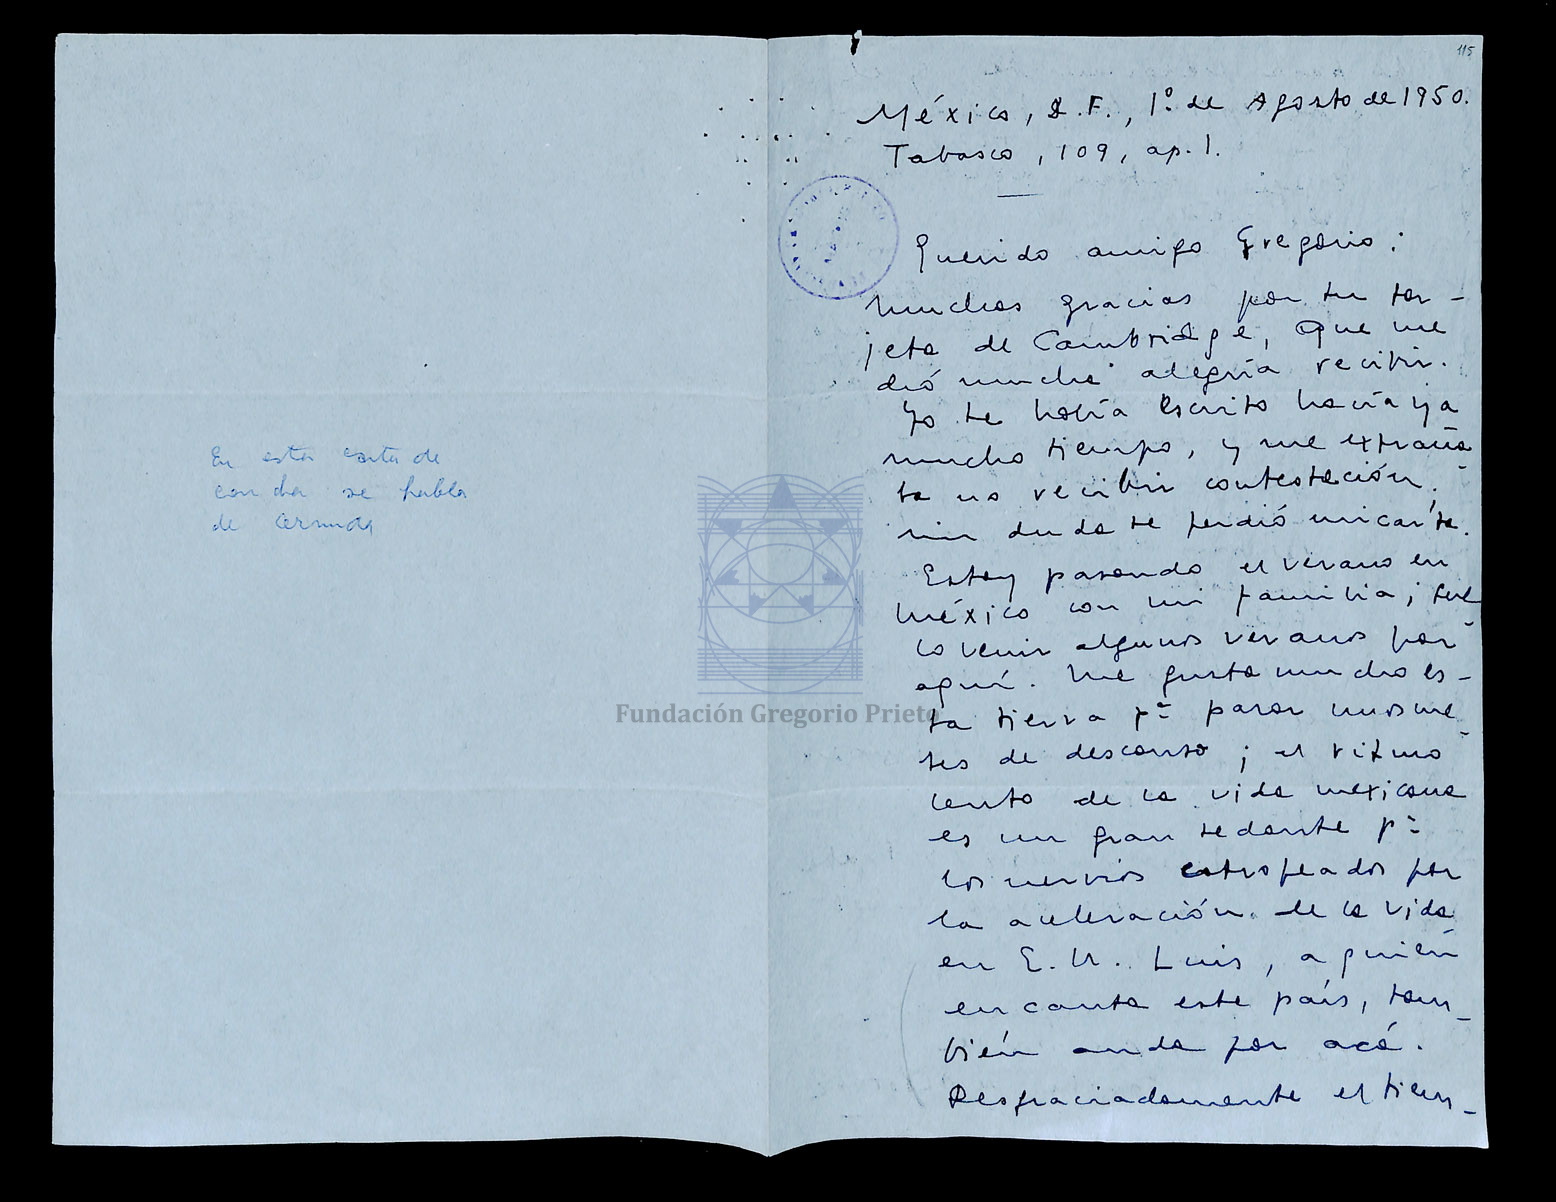 En esta carta de
concha se habla
de cernuda
115
México, D.F., 1º de Agosto de 1950.
Tabasco, 109, ap. 1.
Querido amigo Gregorio:
Muchas gracias por tu tar-
jeta de Cambridge, que me
dió mucha alegría recibir.
Yo te había escrito hacía ya
mucho tiempo, y me extraña-
ba no recibir contestación;
sin duda se perdió mi carta.
Estoy pasando el verano en
México con mi familia; sue-
lo venir algunos veranos por
aquí. Me gusta mucho es-
ta tierra pª pasar unos me-
ses de descanso; el ritmo
lento de la vida mexicana
es un gran sedante pª
los nervios estropeados por
la aceleración de la vida
en E.U. Luis, a quién
encanta este país, tam-
bién anda por acá.
Desgraciadamente el tiem-
Fundación Gregorio Prieto